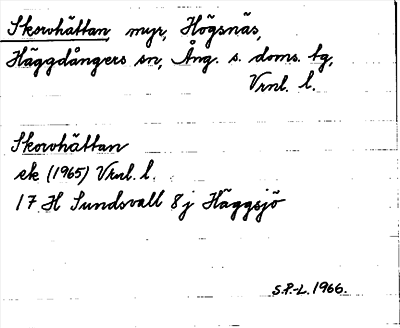 Skorvhättan, myr, Högsnäs,
Häggdångers sn, Ång. s. doms. tg,
Vrnl. l.
Skorvhättan
ek (1965) Vrnl. l.
17 H Sundsvall 8j Häggsjö
S.P.-L. 1966.